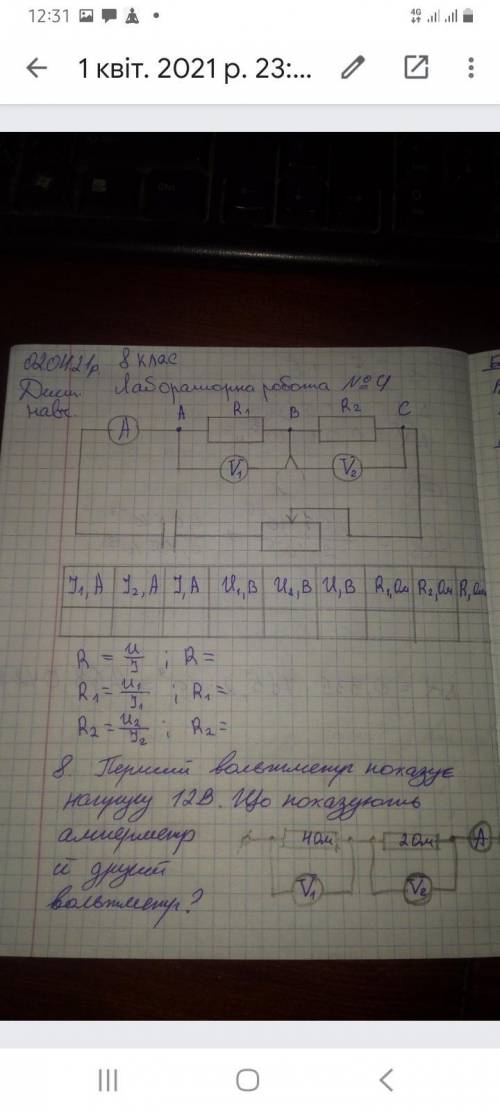 12:31
4G
1 квіт. 2021 р. 23:...
020421р. 8 клас
Дист. Лабораторна робота №4
навч.
A R1 B R2 C
A
V1 V2
I1, A I2, A I, A U1, В U2, В U, В R1, Ом R2, Ом R, Ом
R = U/I ; R =
R1 = U1/I1 ; R1 =
R2 = U2/I2 ; R2 =
8. Перший вольтметр показує
напругу 12В. Що показують
амперметр
й другий
вольтметр?
4 Ом 2 Ом A
V1 V2